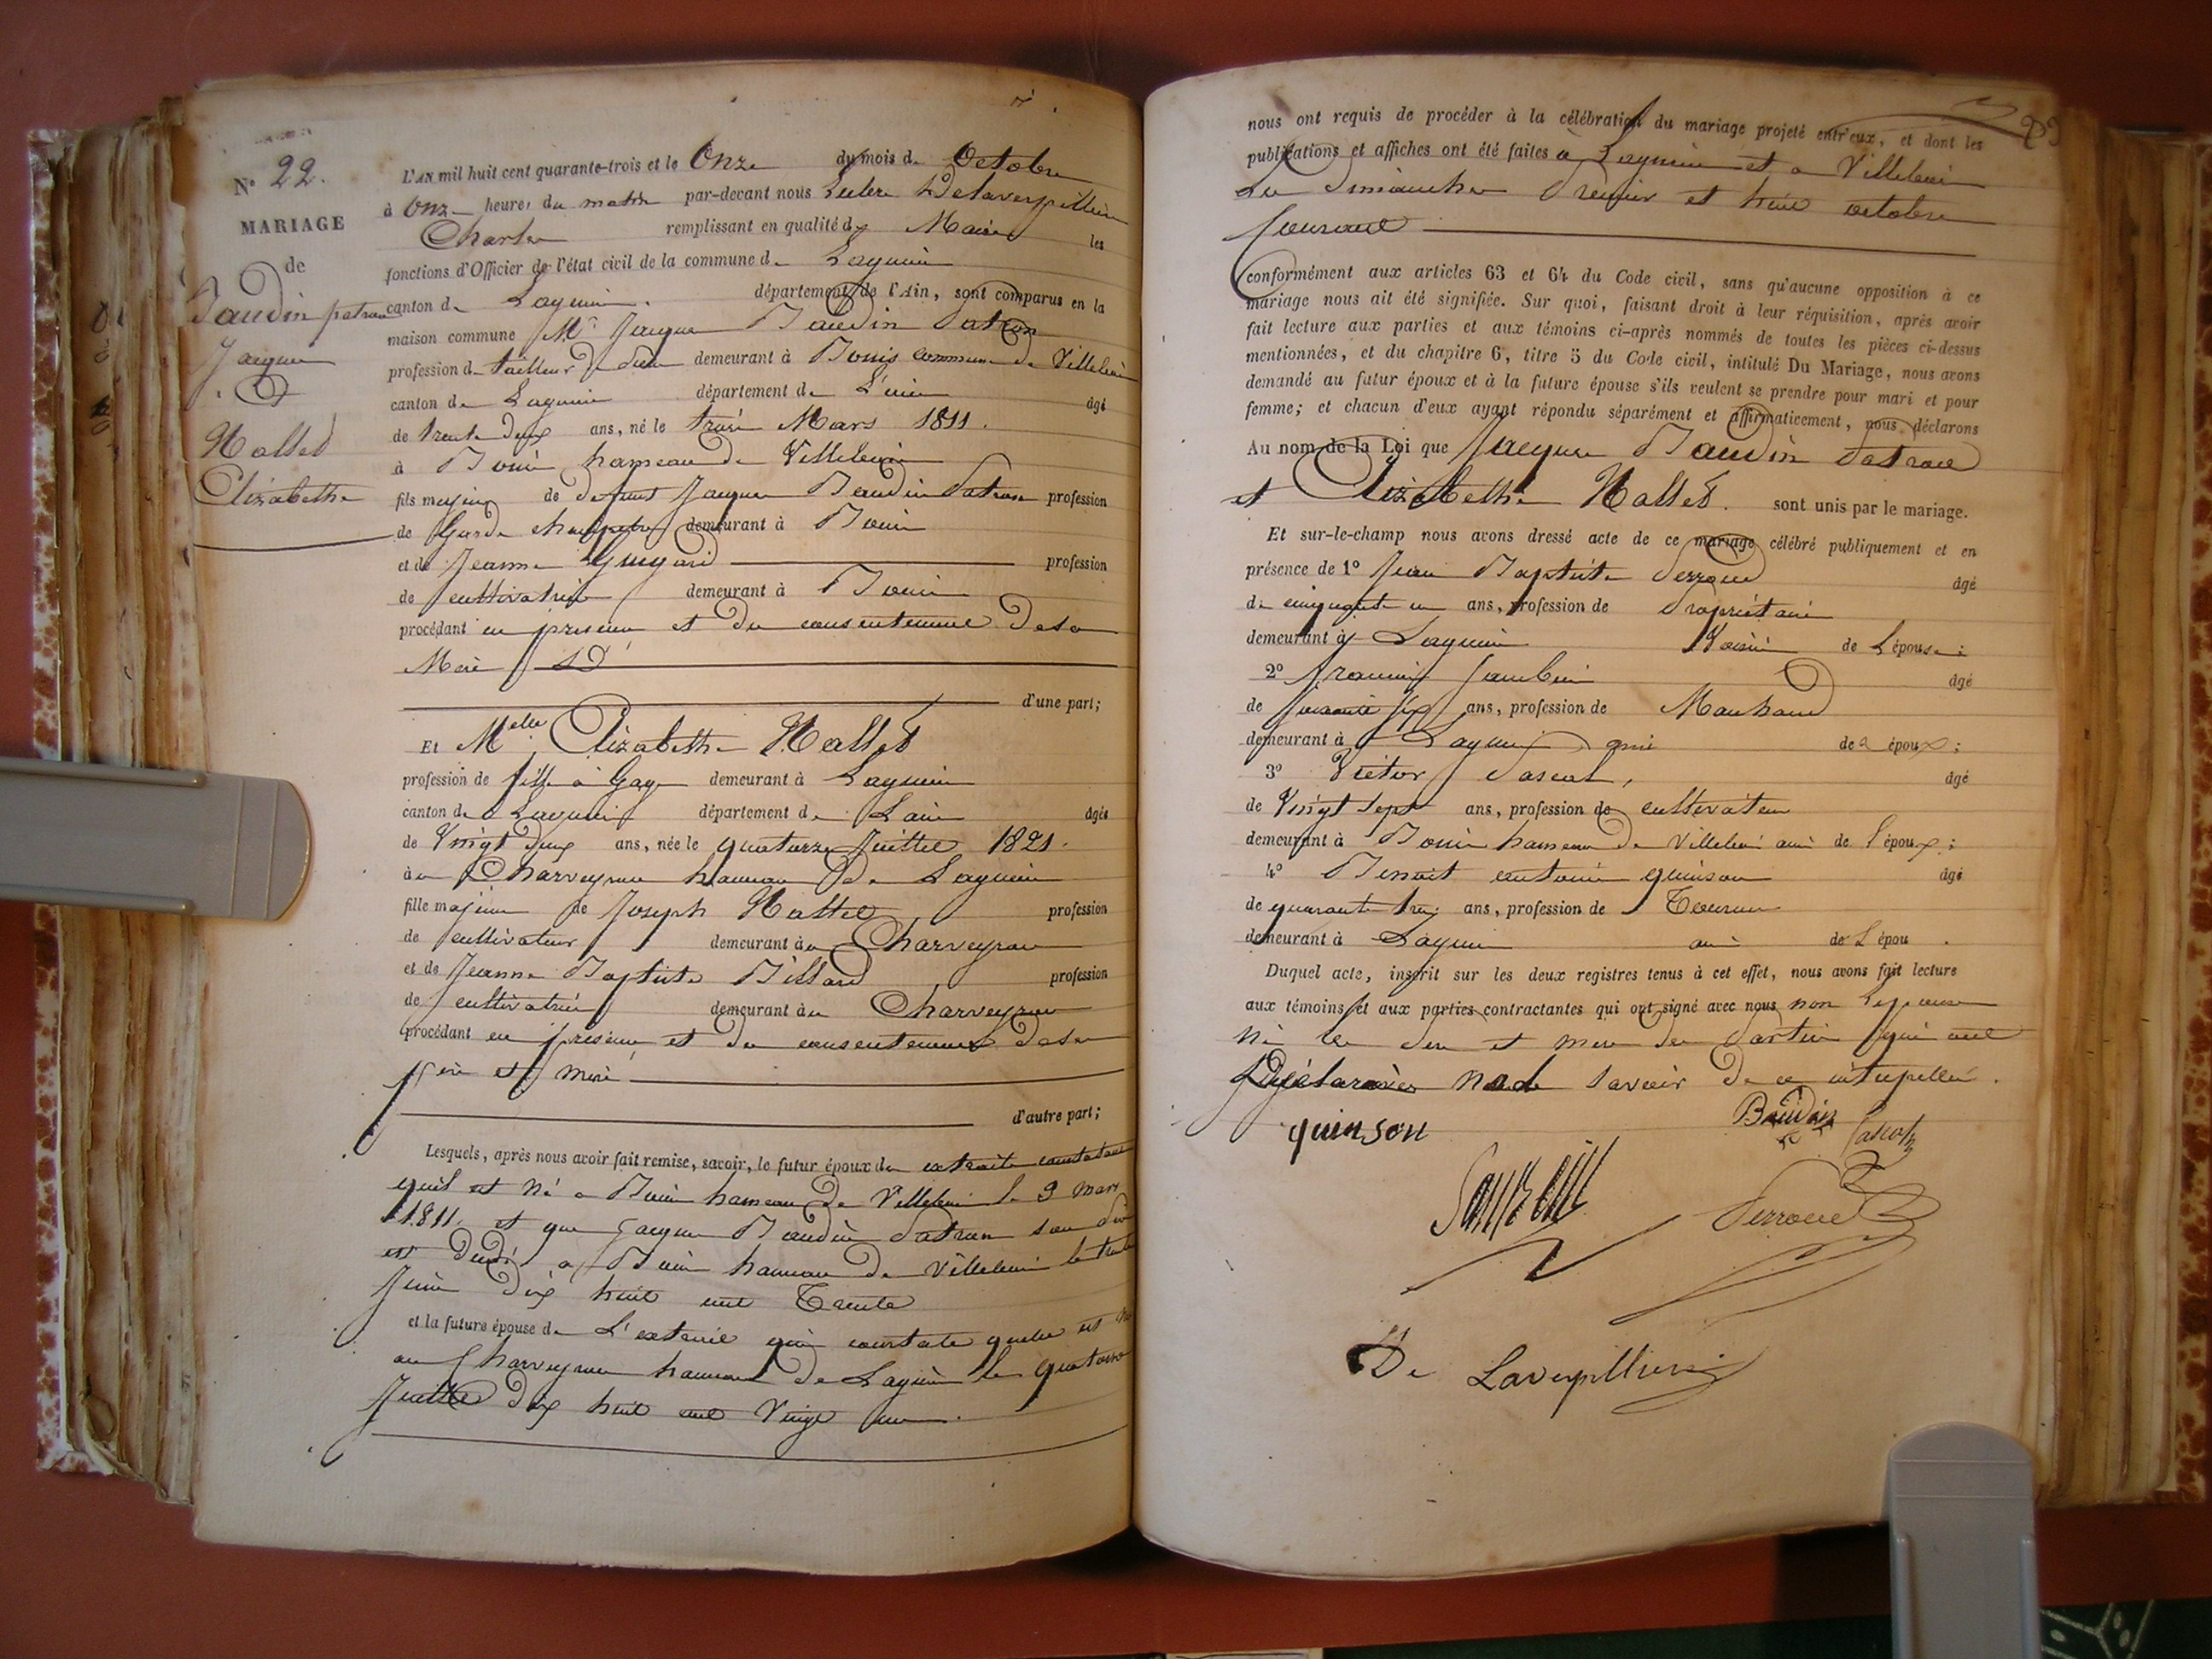 N° 22.
MARIAGE
de
Baudin patron
Jacques
&
Hallet
Elizabeth
L'AN mil huit cent quarante-trois et le Onze du mois d. Octobre
à Onze heures du matin par-devant nous Delaverpillière
Charles remplissant en qualité de Maire les
fonctions d'Officier de l'état civil de la commune d. Lagnieu
canton de Lagnieu. département de l'Ain, sont comparus en la
maison commune Mr. Jacques Baudin Patron
profession de tailleur demeurant à Bouis commune de Villebois
canton de Lagnieu département de L'ain âgé
de trente deux ans, né le trois Mars 1811.
à Bouis hameau de Villebois
fils majeur de defunt Jacques Baudin Patron profession
de Garde champetre demeurant à Bouis
et de Jeanne Guyard profession
de cultivatrice demeurant à Bouis
procédant en présence et du consentement de sa
Mère
d'une part;
Et Melle Elizabeth Hallet
profession de fille à Gage demeurant à Lagnieu
canton de Lagnieu département de Lain âgée
de Vingt deux ans, née le quatorze Juillet 1821.
au Charveyron hameau de Lagnieu
fille majeure de Joseph Hallet profession
de cultivateur demeurant au Charveyron
et de Jeanne Baptiste Billard profession
de cultivatrice demeurant au Charveyron
procédant en présence et du consentement de ses
père et mère
d'autre part;
Lesquels, après nous avoir fait remise, savoir, le futur époux des extraits constatant
quil est né a Bouis hameau de Villebois le 3 mars
1811. et que Jacques Baudin Patron son père
est décédé a Bouis hameau de Villebois le
Juin dix huit cent Trente
et la future épouse de L'extrait qui constate quelle est née
au Charveyron hameau de Lagnieu le quatorze
Juillet dix huit cent Vingt un.
nous ont requis de procéder à la célébration du mariage projeté entr'eux, et dont les
publications et affiches ont été faites à Lagnieu et a Villebois
Les Dimanches Premier et huit octobre
Courant
conformément aux articles 63 et 64 du Code civil, sans qu'aucune opposition à ce
mariage nous ait été signifiée. Sur quoi, faisant droit à leur réquisition, après avoir
fait lecture aux parties et aux témoins ci-après nommés de toutes les pièces ci-dessus
mentionnées, et du chapitre 6, titre 5 du Code civil, intitulé Du Mariage, nous avons
demandé au futur époux et à la future épouse s'ils veulent se prendre pour mari et pour
femme; et chacun d'eux ayant répondu séparément et affirmativement, nous déclarons
Au nom de la Loi que Jacques Baudin Patron
et Elizabeth Hallet. sont unis par le mariage.
Et sur-le-champ nous avons dressé acte de ce mariage célébré publiquement et en
présence de 1° Jean Baptiste Perroud âgé
de cinquante un ans, profession de Propriétaire
demeurant à Lagnieu Voisin de L'épouse;
2° âgé
de soixante six ans, profession de Marchand
demeurant à Lagnieu ami de époux;
3° Victor Pascal, âgé
de Vingt Sept ans, profession de cultivateur
demeurant à Bouis hameau de Villebois ami de l'époux;
4° Benoit antoine quinson âgé
de quarante trois ans, profession de
demeurant à Lagnieu ami de L'épou.
Duquel acte, inscrit sur les deux registres tenus à cet effet, nous avons fait lecture
aux témoins et aux parties contractantes qui ont signé avec nous non L'epouse
ni les père et mère des parties qui ont
Déclaré ne le savoir de ce interpellés.
quinson
Baudin
Pascal
Perroud
De Laverpilliere